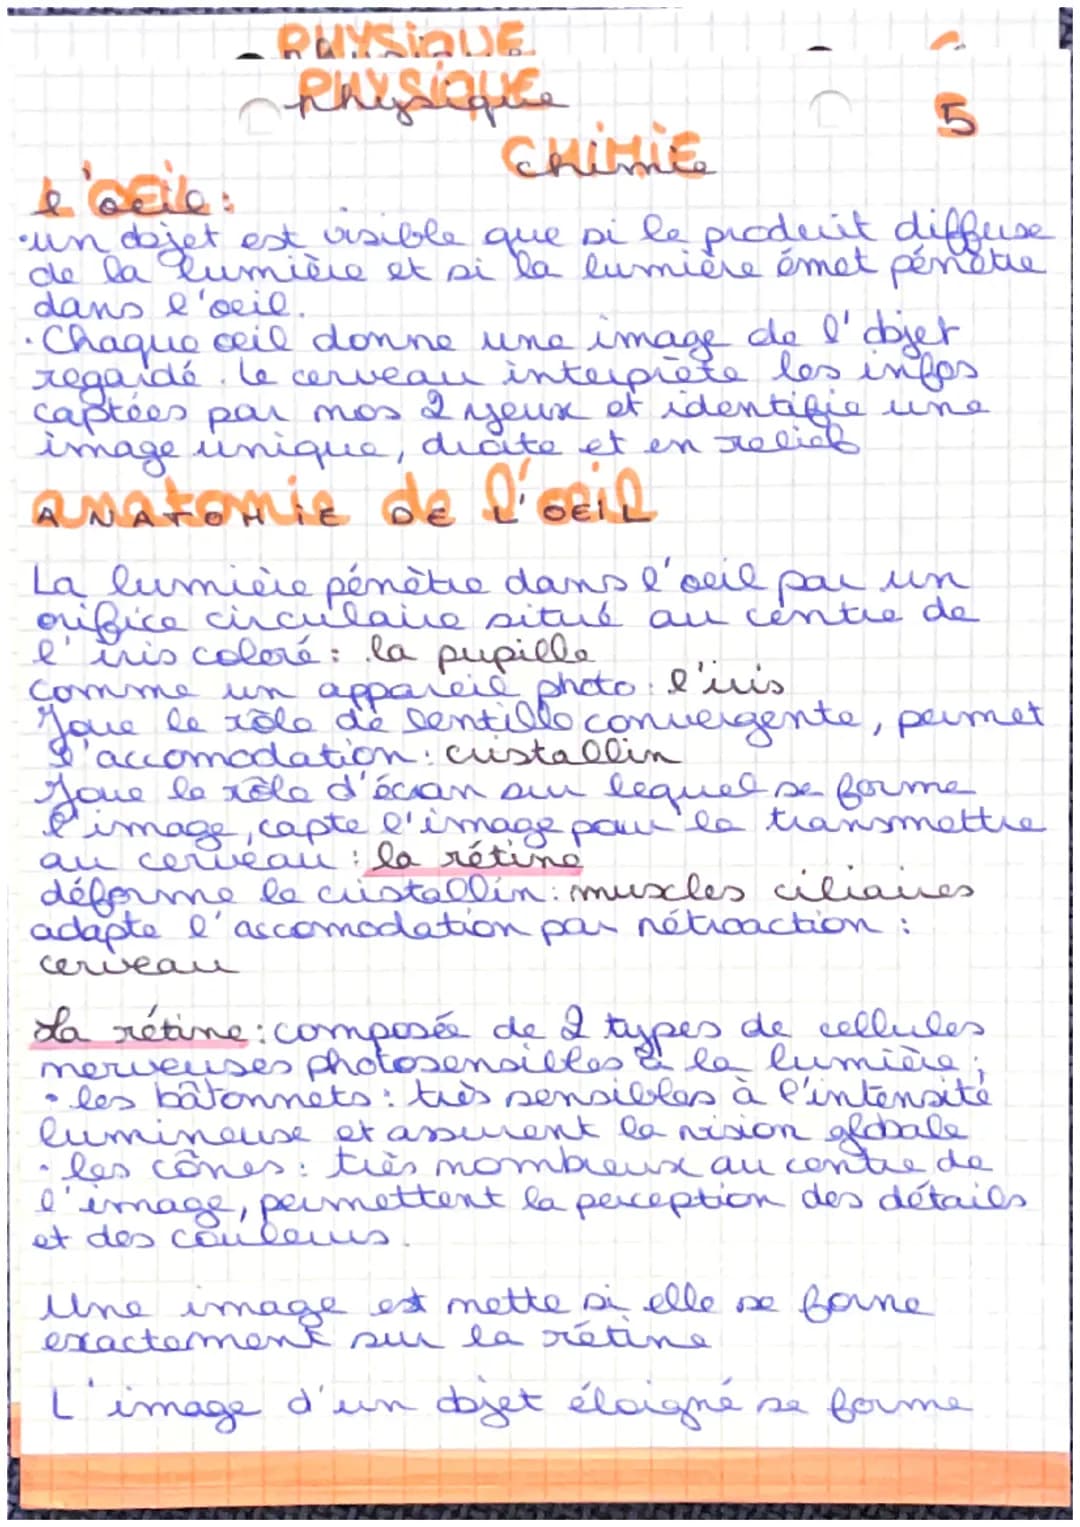 PHYSIQUE
PHYSIQUE
physique
5
CHIMIE
chimie
l'oeil :
• un objet est visible que si le produit diffuse
de la lumière et si la lumière émet pénètre
dans l'oeil.
• Chaque oeil donne une image de l'objet
regardé. le cerveau interprète les infos
captées par nos 2 yeux et identifie une
image unique, droite et en relief
anatomie de l'oeil
ANATOMIE DE L'OEIL
La lumière pénètre dans l'oeil par un
orifice circulaire situé au centre de
l'iris coloré : la pupille
comme un appareil photo : l'iris
Joue le rôle de lentille convergente, permet
l'accomodation : cristallin
Joue le rôle d'écran sur lequel se forme
l'image, capte l'image pour la transmettre
au cerveau : la rétine
déforme le cristallin : muscles ciliaires
adapte l'accomodation par rétroaction :
cerveau
La rétine : composée de 2 types de cellules
nerveuses photosensibles à la lumière ;
• les bâtonnets : très sensibles à l'intensité
lumineuse et assurent la vision globale
• les cônes : très nombreux au centre de
l'image, permettent la perception des détails
et des couleurs.
Une image est nette si elle se forme
exactement sur la rétine
L'image d'un objet éloigné se forme